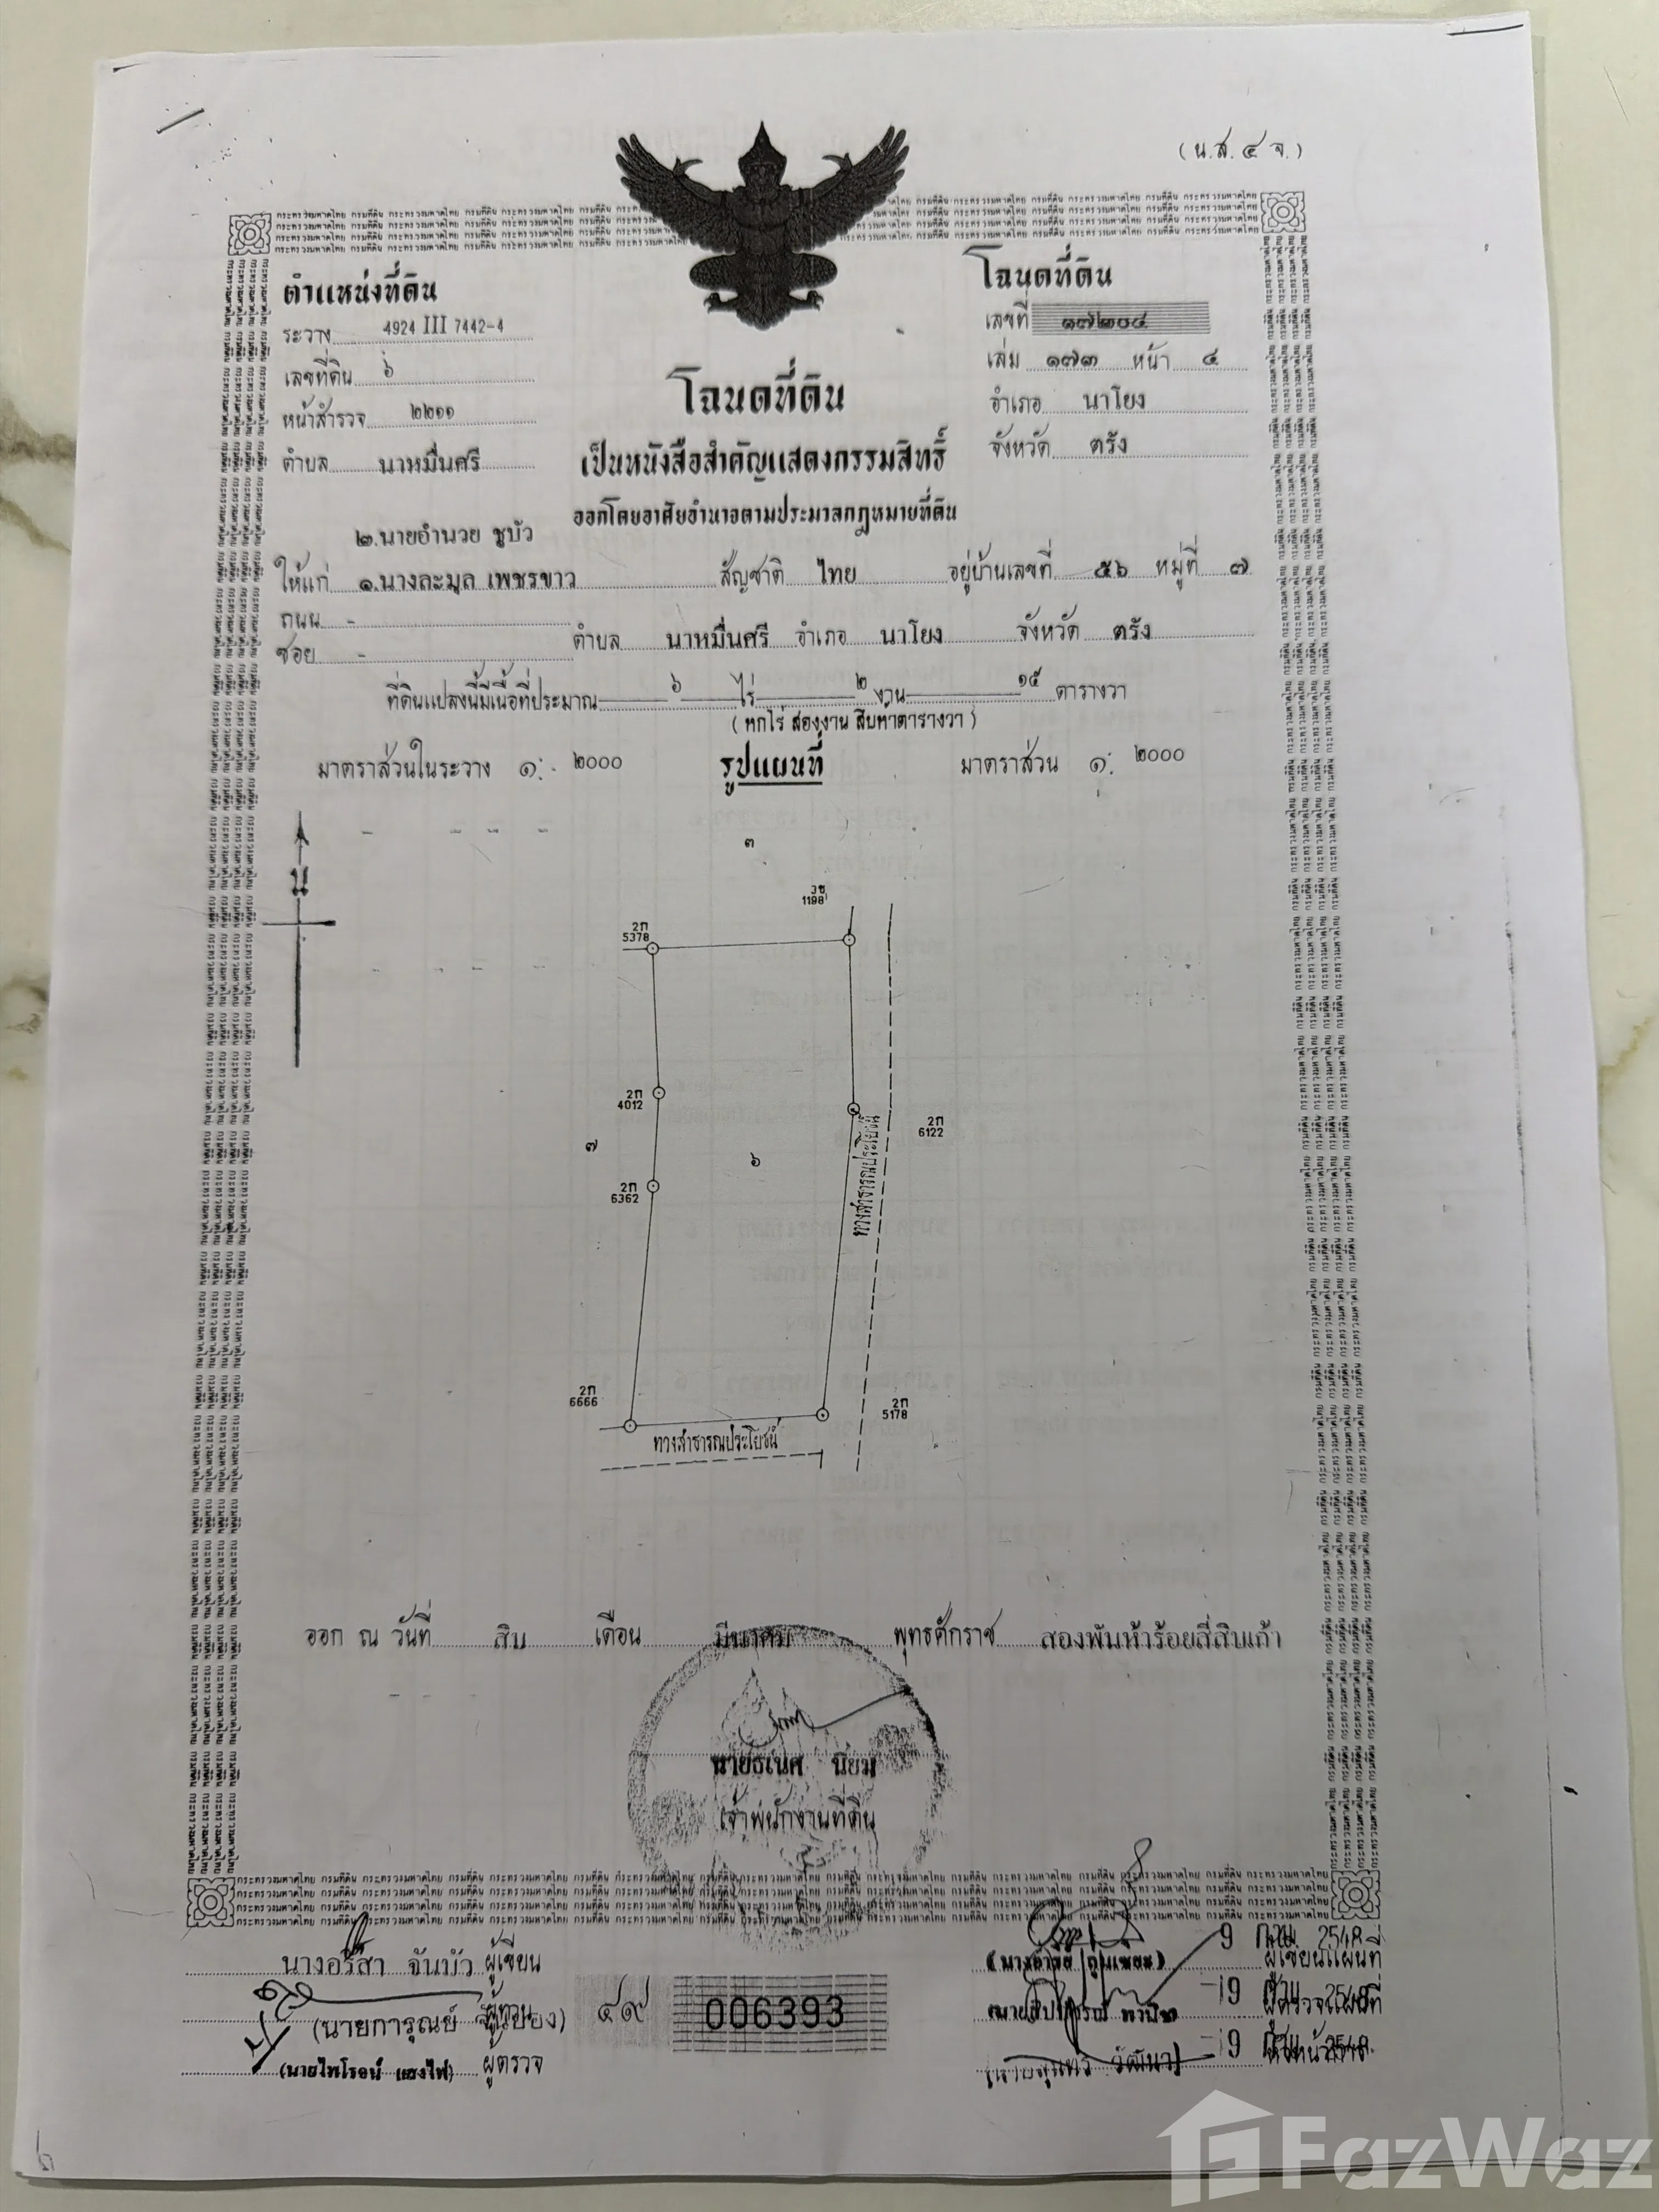 (น.ส.๔ จ.)
ตำแหน่งที่ดิน
ระวาง 4924 III 7442-4
เลขที่ดิน ๖
หน้าสำรวจ ๒๒๑๑
ตำบล นาหมื่นศรี
โฉนดที่ดิน
เลขที่ ๑๗๒๐๔
เล่ม ๑๗๓ หน้า ๔
อำเภอ นาโยง
จังหวัด ตรัง
โฉนดที่ดิน
เป็นหนังสือสำคัญแสดงกรรมสิทธิ์
ออกโดยอาศัยอำนาจตามประมวลกฎหมายที่ดิน
๒.นายอำนวย ชูบัว
ให้แก่ ๑.นางละมูล เพชรขาว สัญชาติ ไทย อยู่บ้านเลขที่ ๕๖ หมู่ที่ ๗
ถนน -
ซอย - ตำบล นาหมื่นศรี อำเภอ นาโยง จังหวัด ตรัง
ที่ดินแปลงนี้มีเนื้อที่ประมาณ ๖ ไร่ ๒ งาน ๑๕ ตารางวา
(หกไร่ สองงาน สิบห้าตารางวา)
มาตราส่วนในระวาง ๑: ๒๐๐๐ รูปแผนที่ มาตราส่วน ๑: ๒๐๐๐
น
๓
3ข
1198
2ก
5378
2ก
4012
2ก
6122
๗
๖
2ก
6362
ทางสาธารณประโยชน์
2ก
6666
2ก
5178
ทางสาธารณประโยชน์
ออก ณ วันที่ สิบ เดือน มีนาคม พุทธศักราช สองพันห้าร้อยสี่สิบเก้า
นายธเนศ นิยม
เจ้าพนักงานที่ดิน
นางอริสา จันบัว ผู้เขียน
(นายการุณย์ ผู้ทาน
(นายไพโรจน์ แสงไฟ) ผู้ตรวจ
๔๙ 006393
9 2548 ผู้เขียนแผนที่
19 ผู้ตรวจแผนที่
19 2548
FazWaz